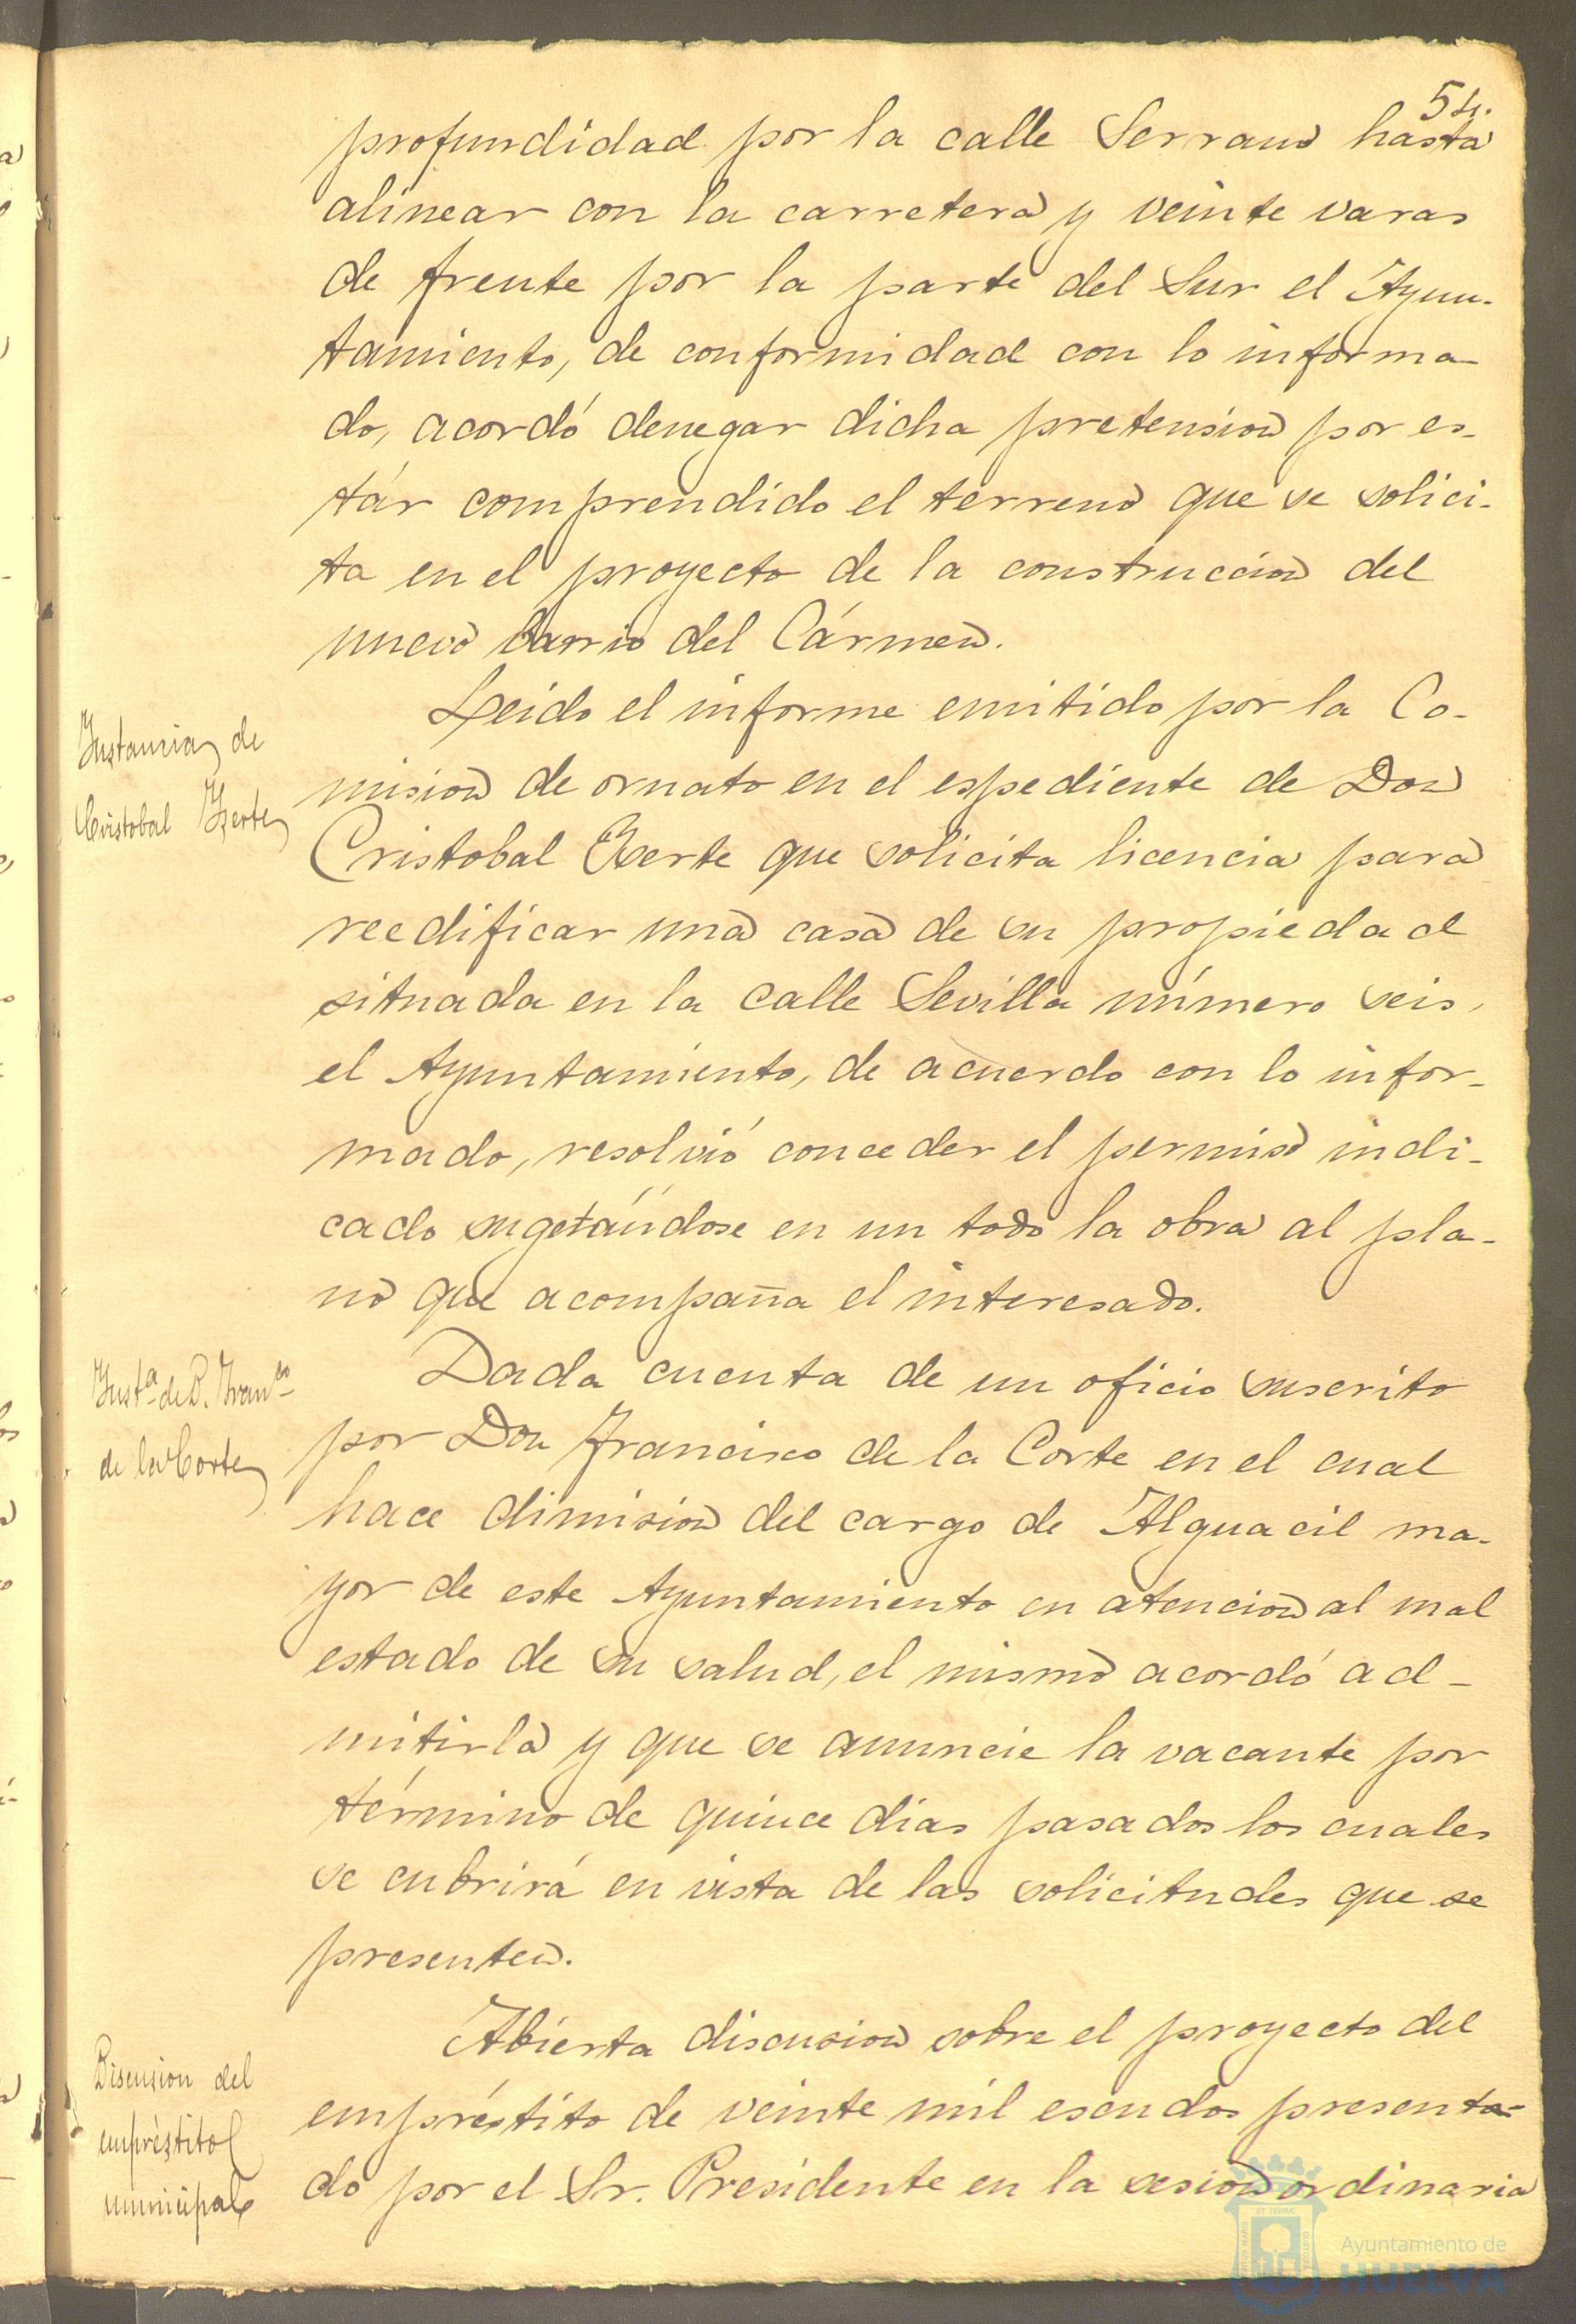 54.
profundidad por la calle Serrano hasta
alinear con la carretera y veinte varas
de frente por la parte del Sur el Ayun-
tamiento, de conformidad con lo informa-
do, acordó denegar dicha pretension por es-
tár comprendido el terreno que se solici-
ta en el proyecto de la construccion del
nuevo barrio del Cármen.
Instancia de
Cristobal
Leido el informe emitido por la Co-
mision de ornato en el espediente de Don
Cristobal que solicita licencia para
reedificar una casa de su propiedad
situada en la calle Sevilla número seis,
el Ayuntamiento, de acuerdo con lo infor-
mado, resolvió conceder el permiso indi-
cado sugetándose en un todo la obra al pla-
no que acompaña el interesado.
Insta. de D. Franco
de la Corte
Dada cuenta de un oficio suscrito
por Don Francisco de la Corte en el cual
hace dimision del cargo de Alguacil ma-
yor de este Ayuntamiento en atencion al mal
estado de su salud, el mismo acordó ad-
mitirla y que se anuncie la vacante por
término de quince dias pasados los cuales
se cubrirá en vista de las solicitudes que se
presenten.
Discusion del
empréstito
municipal
Abierta discusion sobre el proyecto del
empréstito de veinte mil escudos presenta-
do por el Sr. Presidente en la sesion ordinaria
Ayuntamiento de
HUELVA